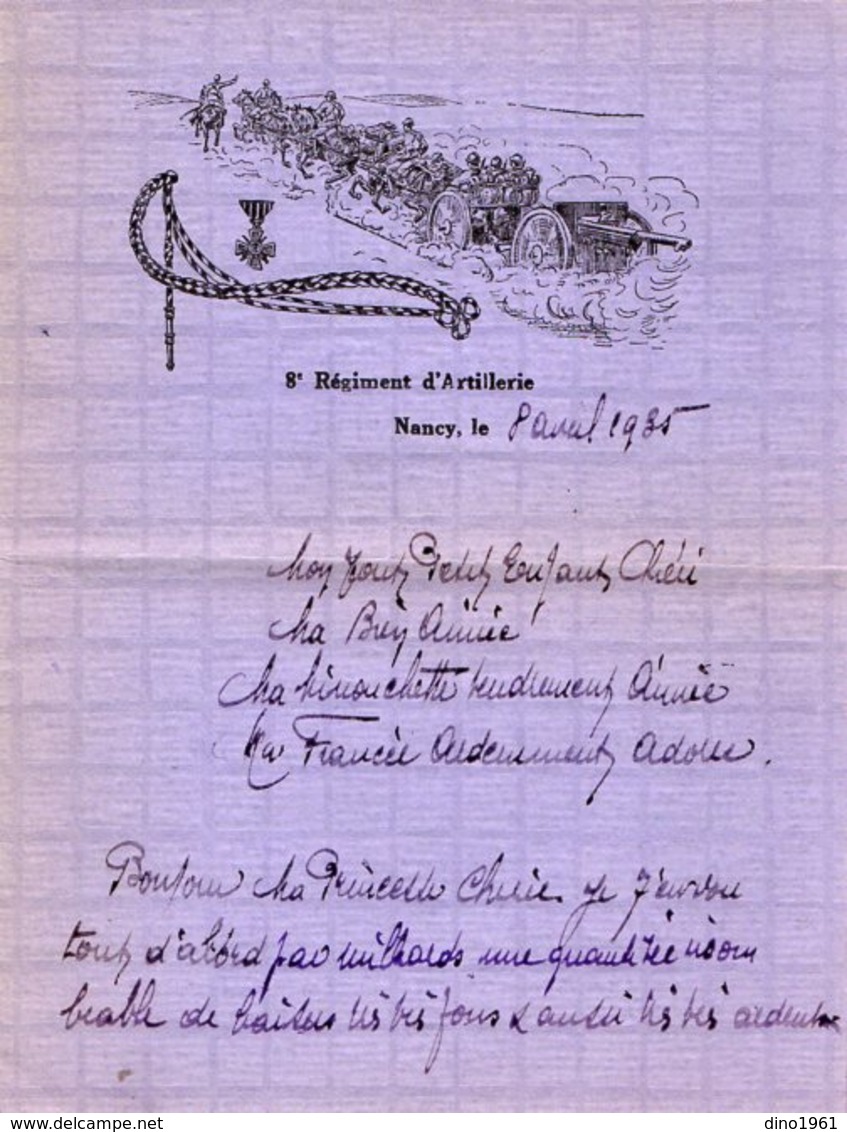 8e Régiment d'Artillerie
Nancy, le 8 avril 1935
Mon Tout Petit Enfant Chéri
Ma Bien Aimée
Ma Minouchette tendrement Aimée
Ma Francée Ardemment Adorée.
Bonjour Ma Princesse Chérie je t'envoie
tout d'abord par milliards une quantitée
de baisers très très fous & aussi très très ardents
www.delcampe.net
dino1961